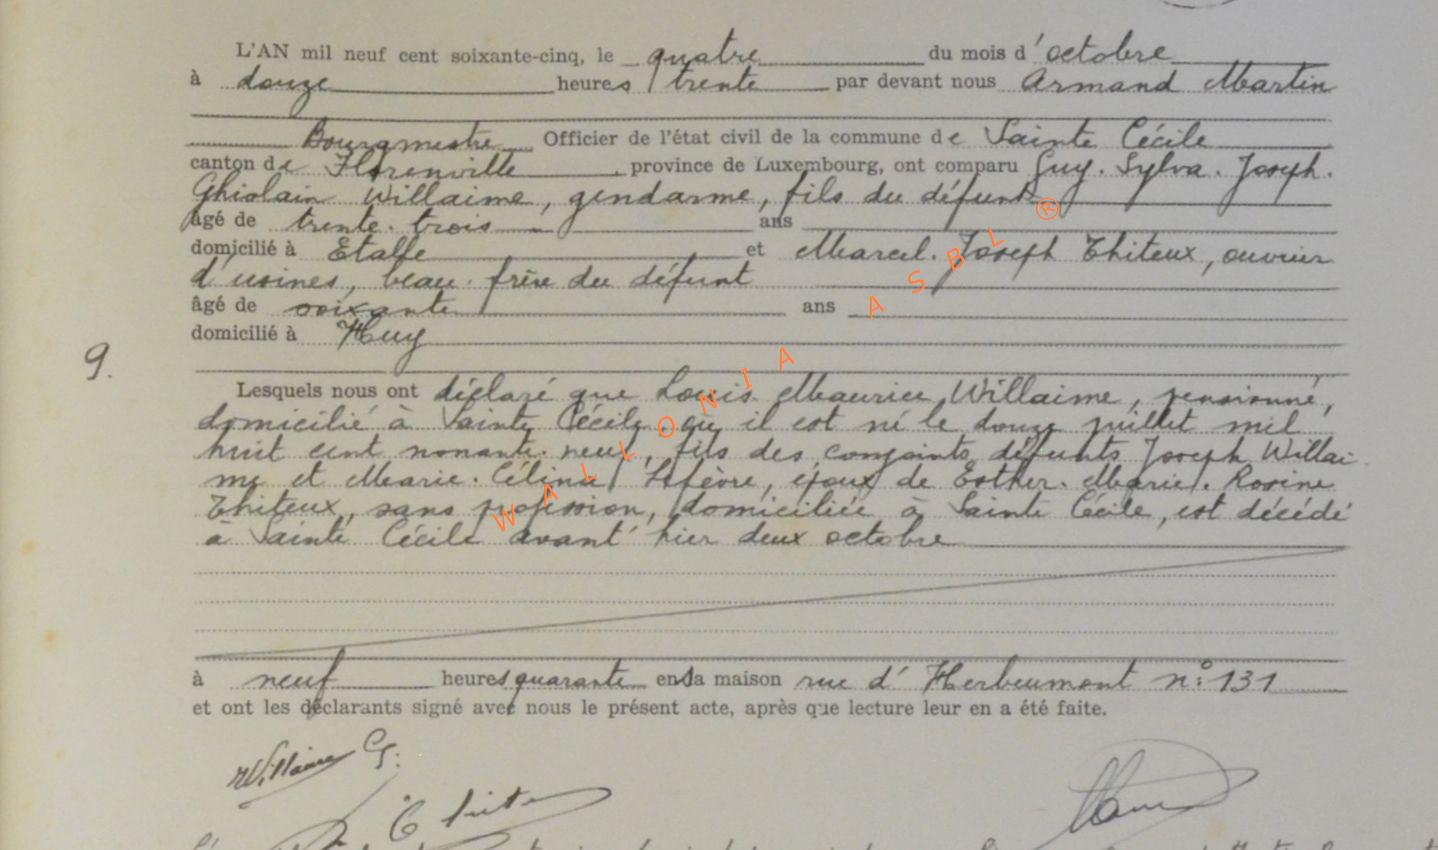 L'AN mil neuf cent soixante-cinq, le quatre du mois d'octobre
à douze heures trente par devant nous Armand Martin
Bourgmestre Officier de l'état civil de la commune de Sainte Cécile
canton de Florenville province de Luxembourg, ont comparu Guy. Sylva. Joseph.
Ghislain Willaime, gendarme, fils du défunt
âgé de trente. trois ans
domicilié à Etalle et Marcel. Joseph Thiteux, ouvrier
d'usines, beau. frère du défunt
âgé de soixante ans
domicilié à Huy
9.
Lesquels nous ont déclaré que Louis Maurice Willaime, pensionné,
domicilié à Sainte Cécile, où il est né le douze juillet mil
huit cent nonante. neuf, fils des conjoints défunts Joseph Willai
me et Marie. Célina Lefèvre, époux de Esther. Marie. Rosine
Thiteux, sans profession, domiciliée à Sainte Cécile, est décédé
à Sainte Cécile avant hier deux octobre
à neuf heures quarante en sa maison rue d'Herbeumont n° 131
et ont les déclarants signé avec nous le présent acte, après que lecture leur en a été faite.
Willaime G.
WALLONIA ASBL ®